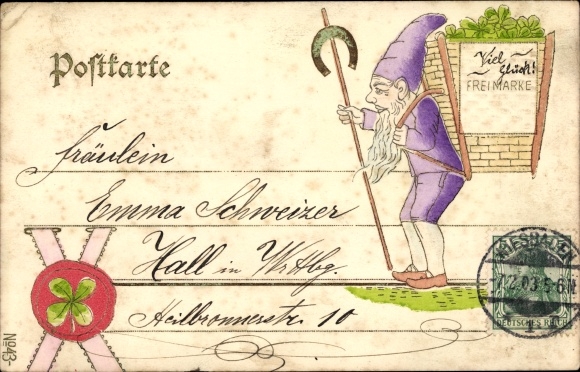 Postkarte
Viel
Glück!
FREIMARKE
Fräulein
Emma Schweizer
Hall in Wttbg.
Heilbronnerstr. 10
WIESBADEN
DEUTSCHES REICH
No 43-